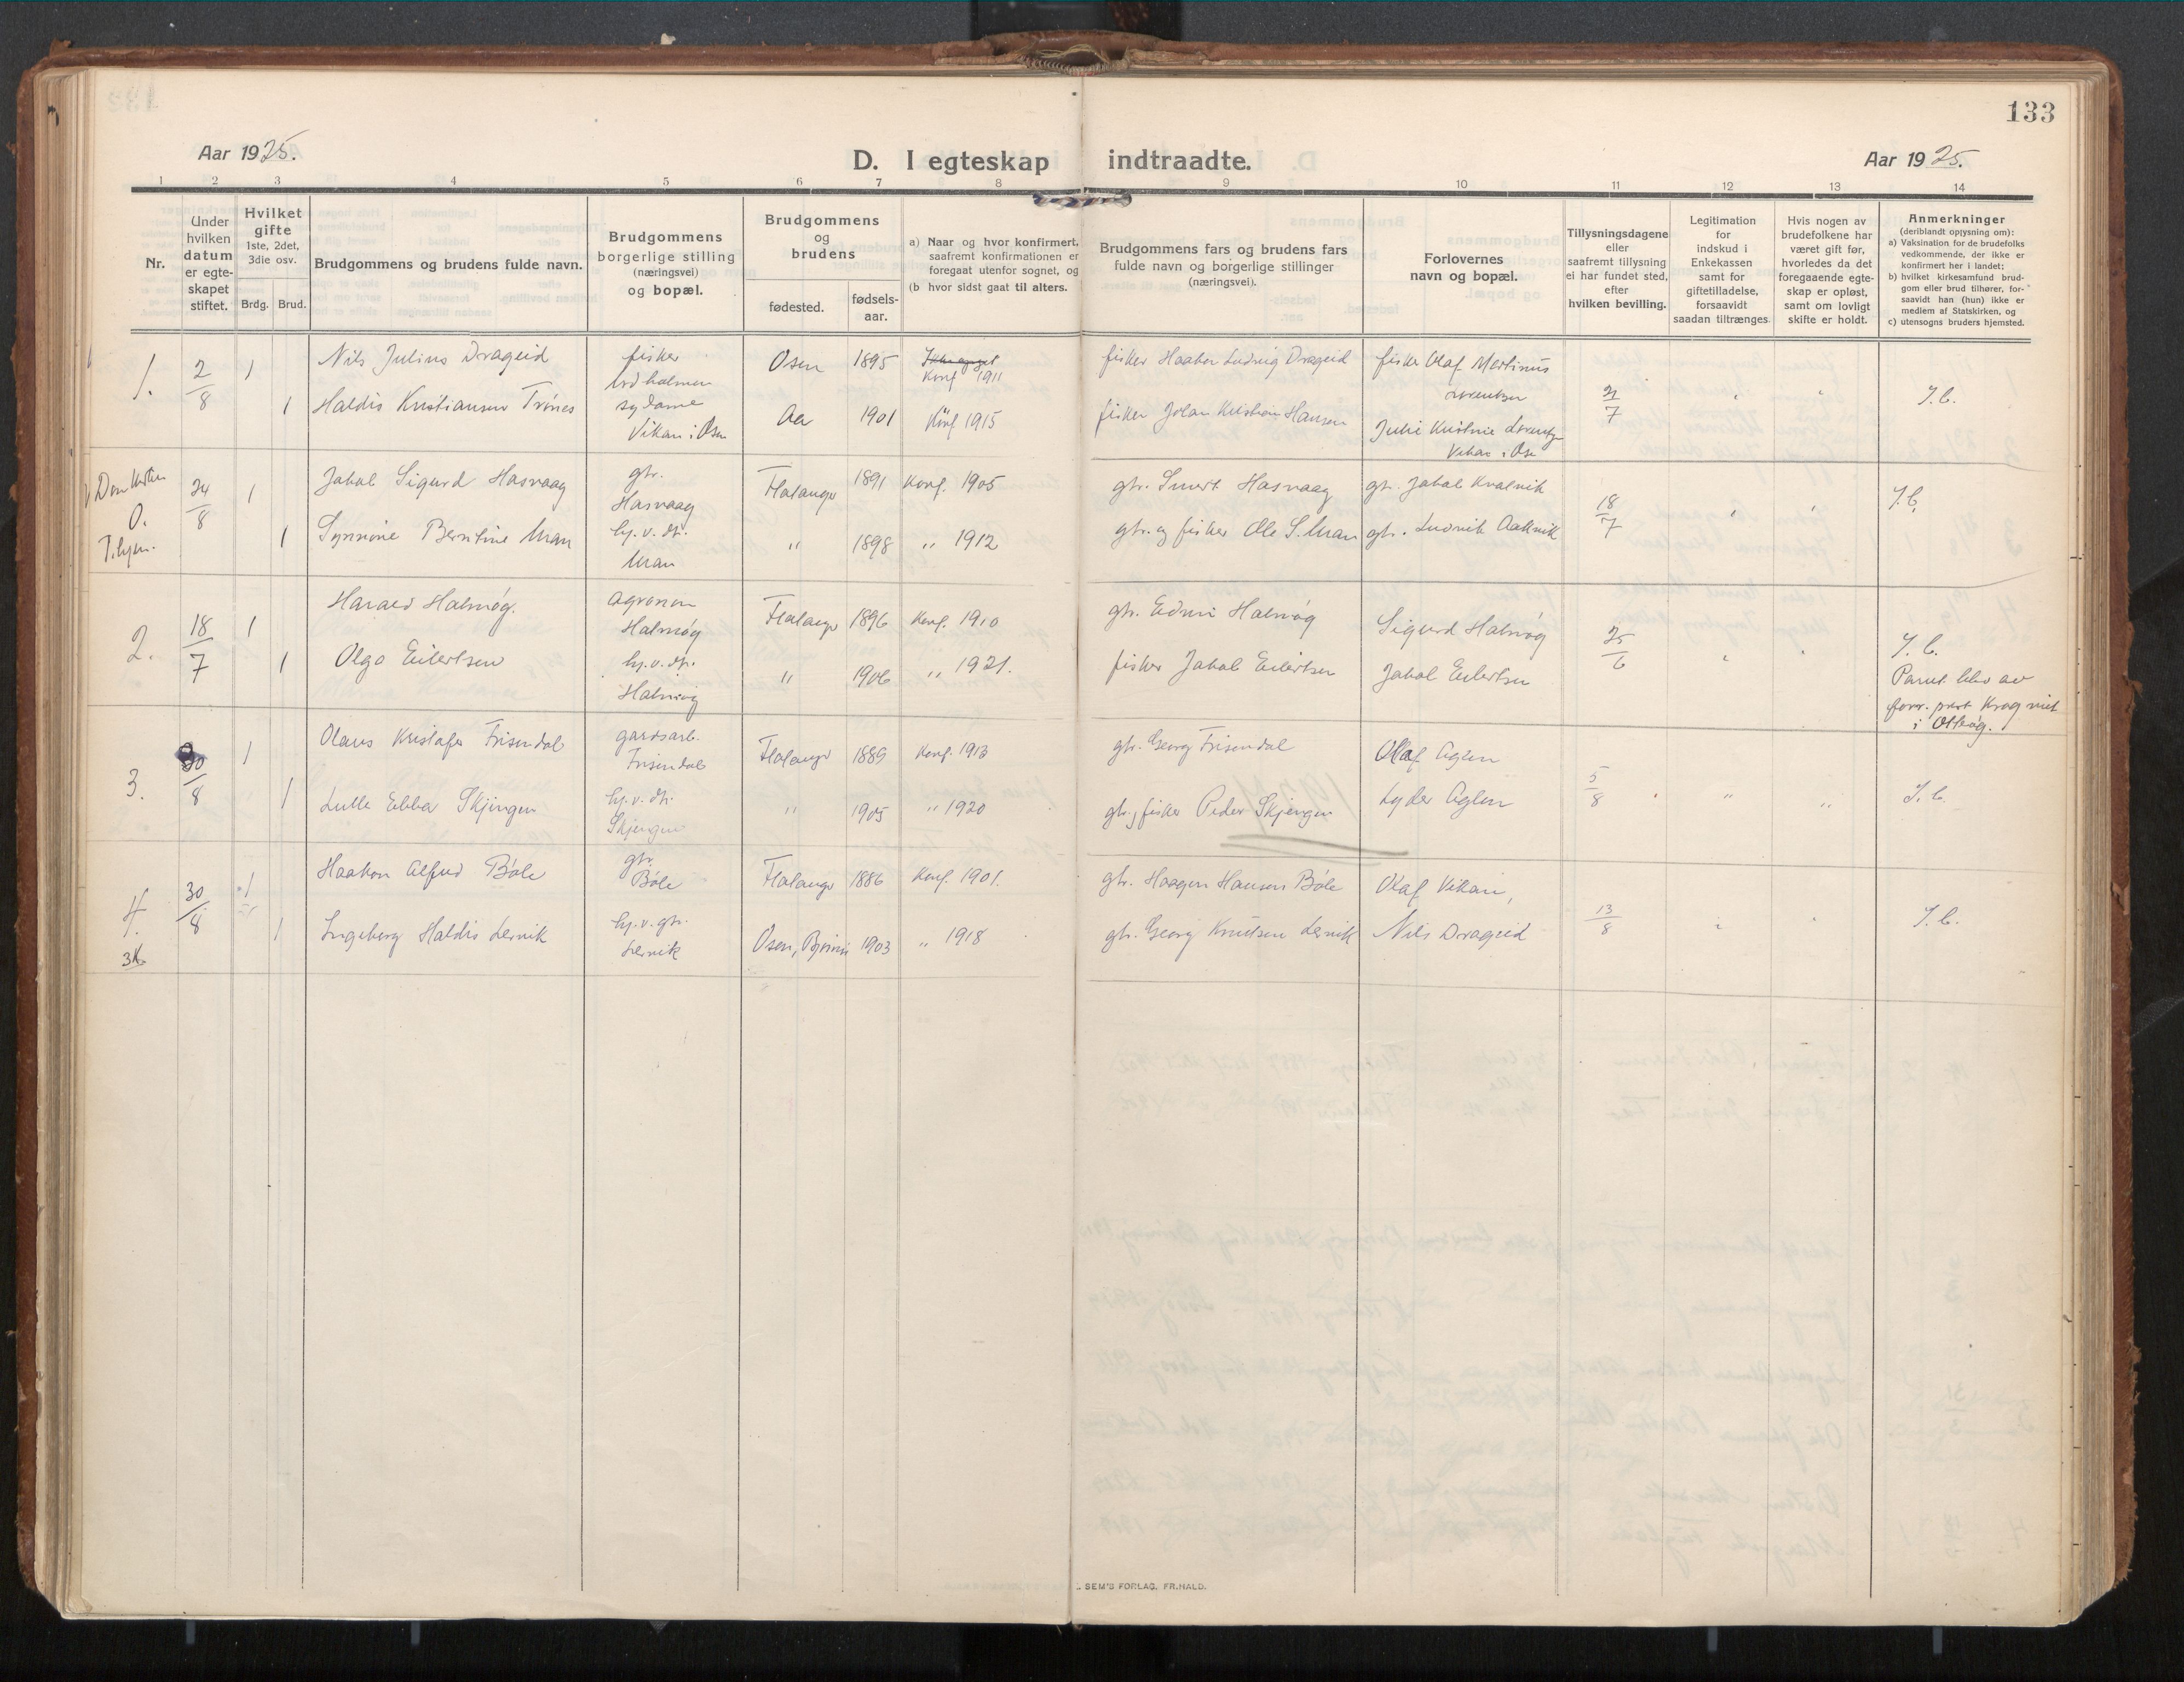 133
Aar 1925.
D. I egteskap indtraadte.
Aar 1925.
1 2 3 4 5 6 7 8 9 10 11 12 13 14
Nr.
Under
hvilken
datum
er egte-
skapet
stiftet.
Hvilket
gifte
1ste, 2det,
3die osv.
Brdg. Brud.
Brudgommens og brudens fulde navn.
Brudgommens
borgerlige stilling
(næringsvei)
og bopæl.
Brudgommens
og
brudens
fødested.
fødsels-
aar.
a) Naar og hvor konfirmert,
saafremt konfirmationen er
foregaat utenfor sognet, og
(b hvor sidst gaat til alters.
Brudgommens fars og brudens fars
fulde navn og borgerlige stillinger
(næringsvei).
Forlovernes
navn og bopæl.
Tillysningsdagene
eller
saafremt tillysning
ei har fundet sted,
efter
hvilken bevilling.
Legitimation
for
indskud i
Enkekassen
samt for
giftetilladelse,
forsaavidt
saadan tiltrænges
Hvis nogen av
brudefolkene har
været gift før,
hvorledes da det
foregaaende egte-
skap er opløst,
samt om lovligt
skifte er holdt.
Anmerkninger
(deriblandt opjysning om):
a) Vaksination for de brudefolks
vedkommende, der ikke er
konfirmert her i landet;
b) hvilket kirkesamfund brud-
gom eller brud tilhører, for-
saavidt han (hun) ikke er
medlem af Statskirken, og
c) utensogns bruders hjemsted.
1. 2/8 1 Nils Julius Drageid fisker Osen 1895 Konf 1911 fisker Haakon Ludvig Drageid fisker Olaf Martinus
Lorentsen
1 Haldis Kristiansen Trönes sydame Aa 1901 Konf 1915 fisker Johan Kristian Hansen 21/7 " " J.C.
Vikan i Osen
24/8 1 Jakob Sigurd Hasvaag gbr. Flatanger 1891 Konf. 1905 gbr. Hasvaag gbr. Jakob Kvalvik 18/7 " " J.C.
Hasvaag
O. 1 Synnöve Berntine Uran hj.v.dtr. " 1898 " 1912 gbr. og fisker Ole S. Uran gbr. Ludvik
Uran
2. 18/7 1 Harald Halmøy. agronom Flatanger 1896 Konf. 1910 gbr. Halmøy Sigurd Halmøy 25/6 " " J.C.
Halmøy
1 Olga Eilertsen hj.v.dtr. " 1906 " 1921. fisker Jakob Eilertsen Jakob Eilertsen Paret blev av
Halmøy forr. prest Krog viet
i Otterøy.
3. 30/8 1 Olaus Kristofer Frisendal gardsarb. Flatanger 1889 Konf. 1913 gbr. Georg Frisendal Olaf Aglen
Frisendal
1 Lulle Ebba Skjingen hj.v.dtr. " 1905 " 1920 gbr., fisker Peder Skjengen Lyder Aglen 5/8 " " J.C.
Skjengen
4. 30/8 1 Haakon Alfred Bøle gbr. Flatanger 1886 Konf. 1901. gbr. Haagen Hansen Bøle Olaf Vikan,
Bøle
1 Ingeborg Haldis Lervik hj.v.gbr. Osen, 1903 " 1918 gbr. Georg Knutsen Lervik Nils Drageid 13/8 " " J.C.
Lervik
SEM'S FORLAG, FR.HALD.